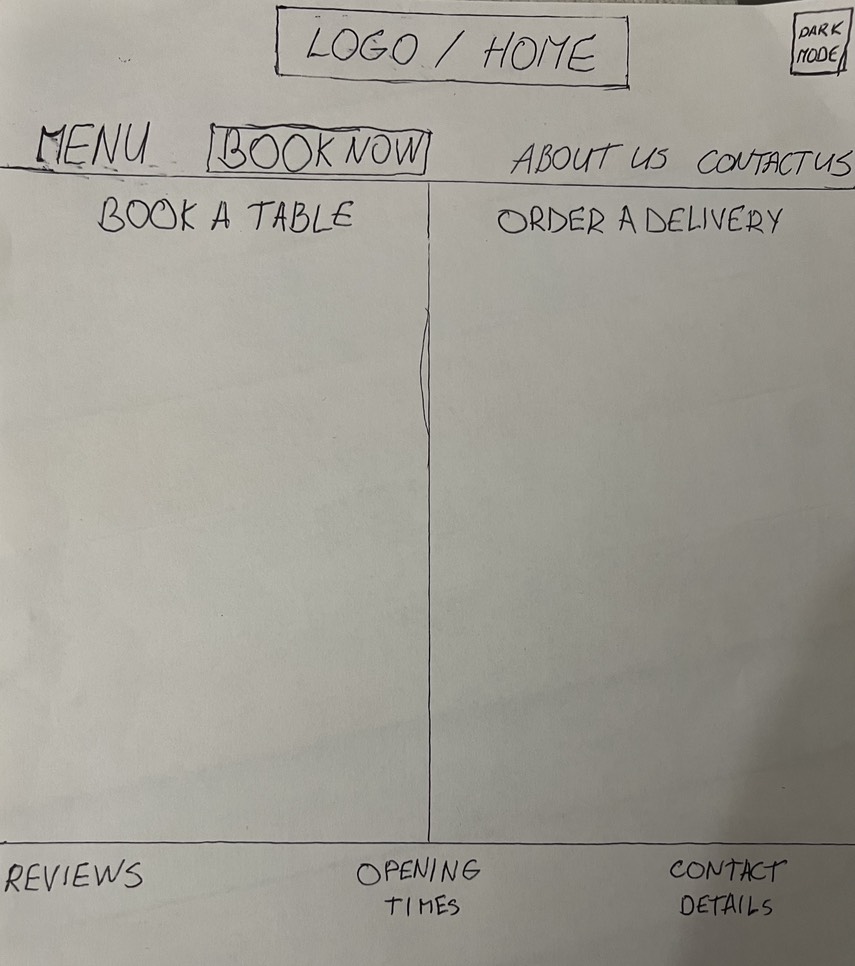 LOGO / HOME
DARK
MODE
MENU BOOK NOW ABOUT US CONTACT US
BOOK A TABLE
ORDER A DELIVERY
REVIEWS
OPENING
TIMES
CONTACT
DETAILS